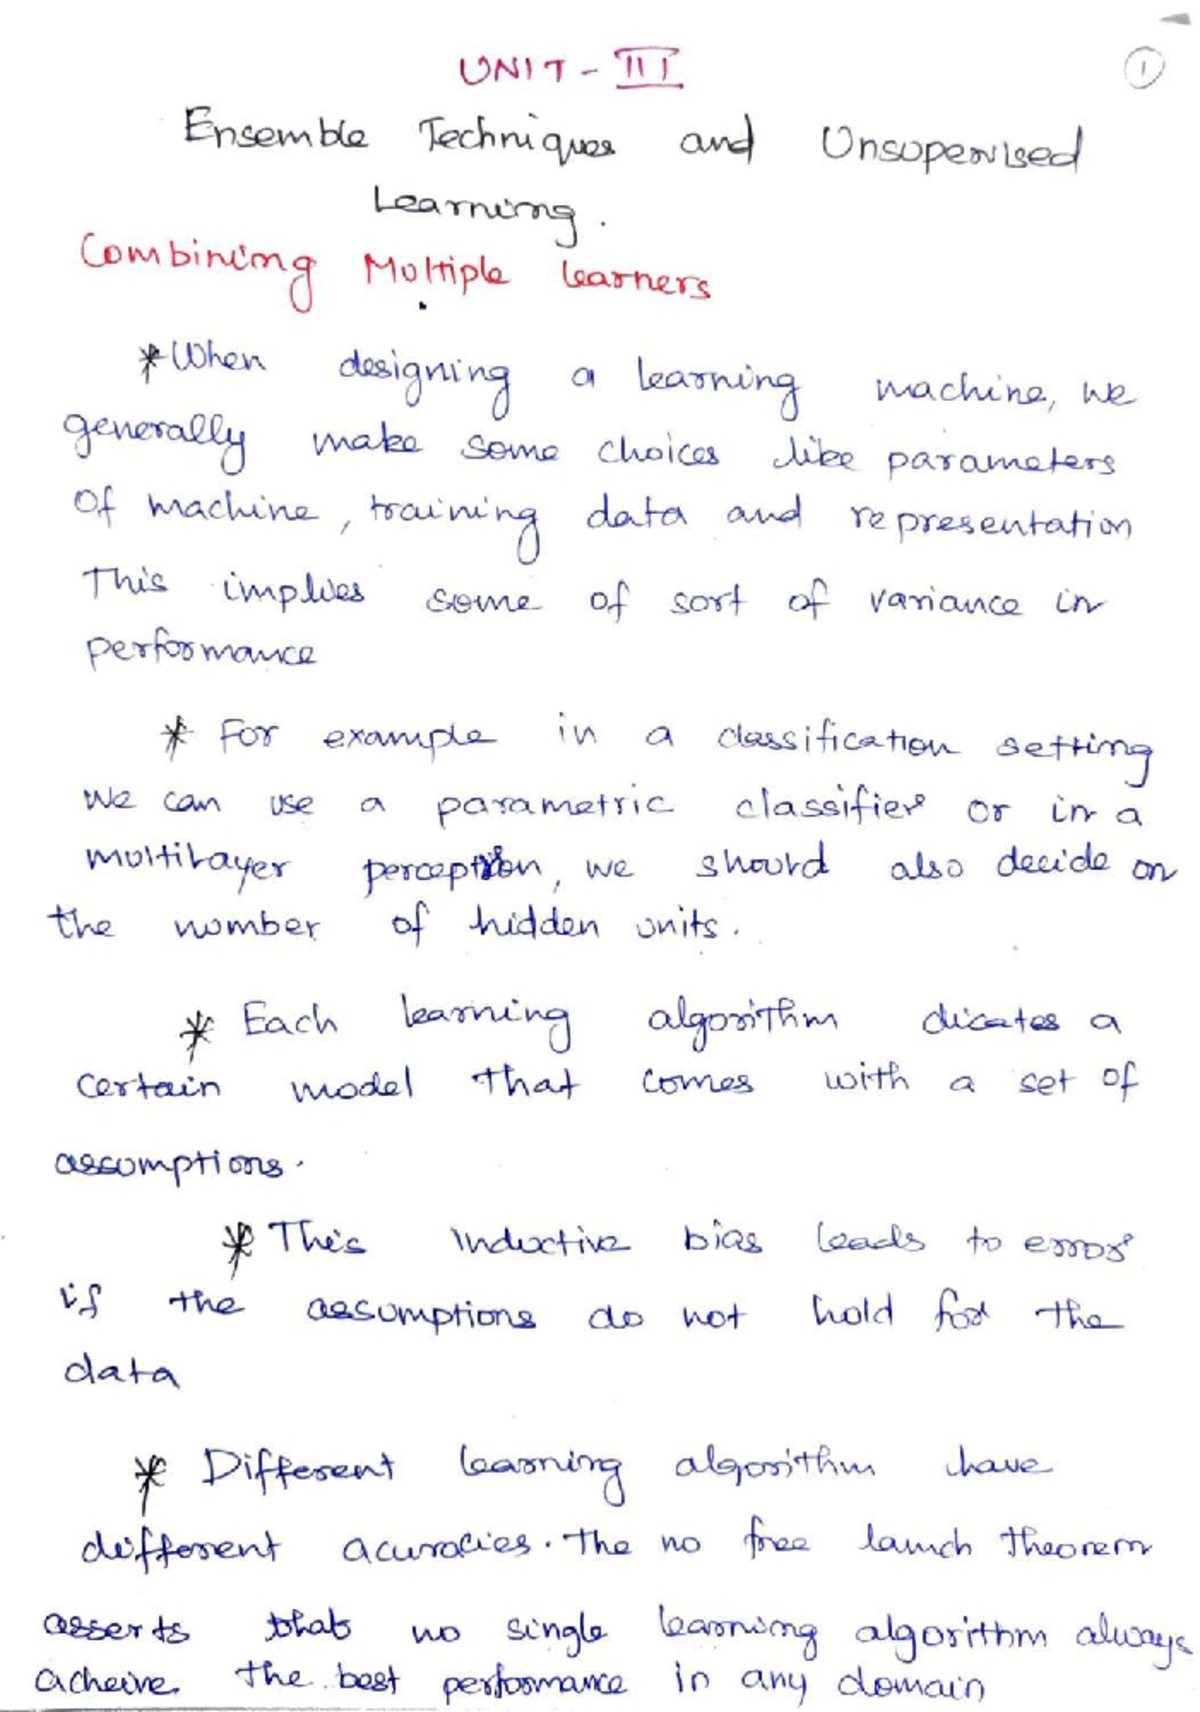 UNIT - III
1
Ensemble Techniques and Unsupervised
Learning.
Combining Multiple learners
* When designing a learning machine, we
generally make some choices like parameters
of machine, training data and representation
This implies some of sort of variance in
performance
* For example in a classification setting
we can use a parametric classifier or in a
multilayer perceptron, we should also decide on
the number of hidden units.
* Each learning algorithm dicates a
certain model that comes with a set of
assumptions.
* This inductive bias leads to error
if the assumptions do not hold for the
data
* Different learning algorithm have
different acuracies. The no free launch theorem
asserts that no single learning algorithm always
acheive the best performance in any domain